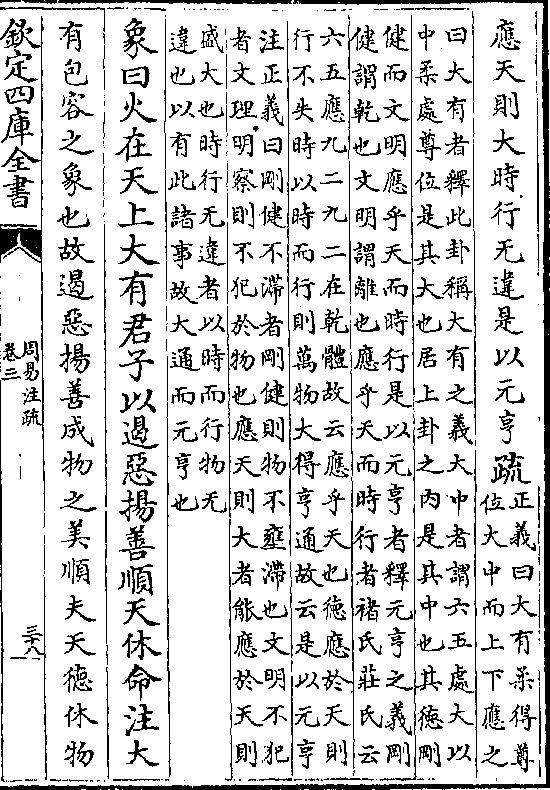 應天則大時行无違是以元亨疏正義曰大有柔得尊
位大中而上下應之
曰大有者釋此卦稱大有之義大中者謂六五處大以
中柔處尊位是其大也居上卦之内是其中也其徳剛
健而文明應乎天而時行是以元亨者釋元亨之義剛
健謂乾也文明謂離也應乎天而時行者褚氏莊氏云
六五應九二九二在乾體故云應乎天也徳應於天則
行不失時以時而行則萬物大得亨通故云是以元亨
注正義曰剛健不滯者剛健則物不壅滯也文明不犯
者文理明察則不犯於物也應天則大者能應於天則
盛大也時行无違者以時而行物无
違也以有此諸事故大通而元亨也
象曰火在天上大有君子以遏惡揚善順天休命注大
有包容之象也故遏惡揚善成物之美順夫天德休物
欽定四庫全書
周易注疏
卷三
三十八